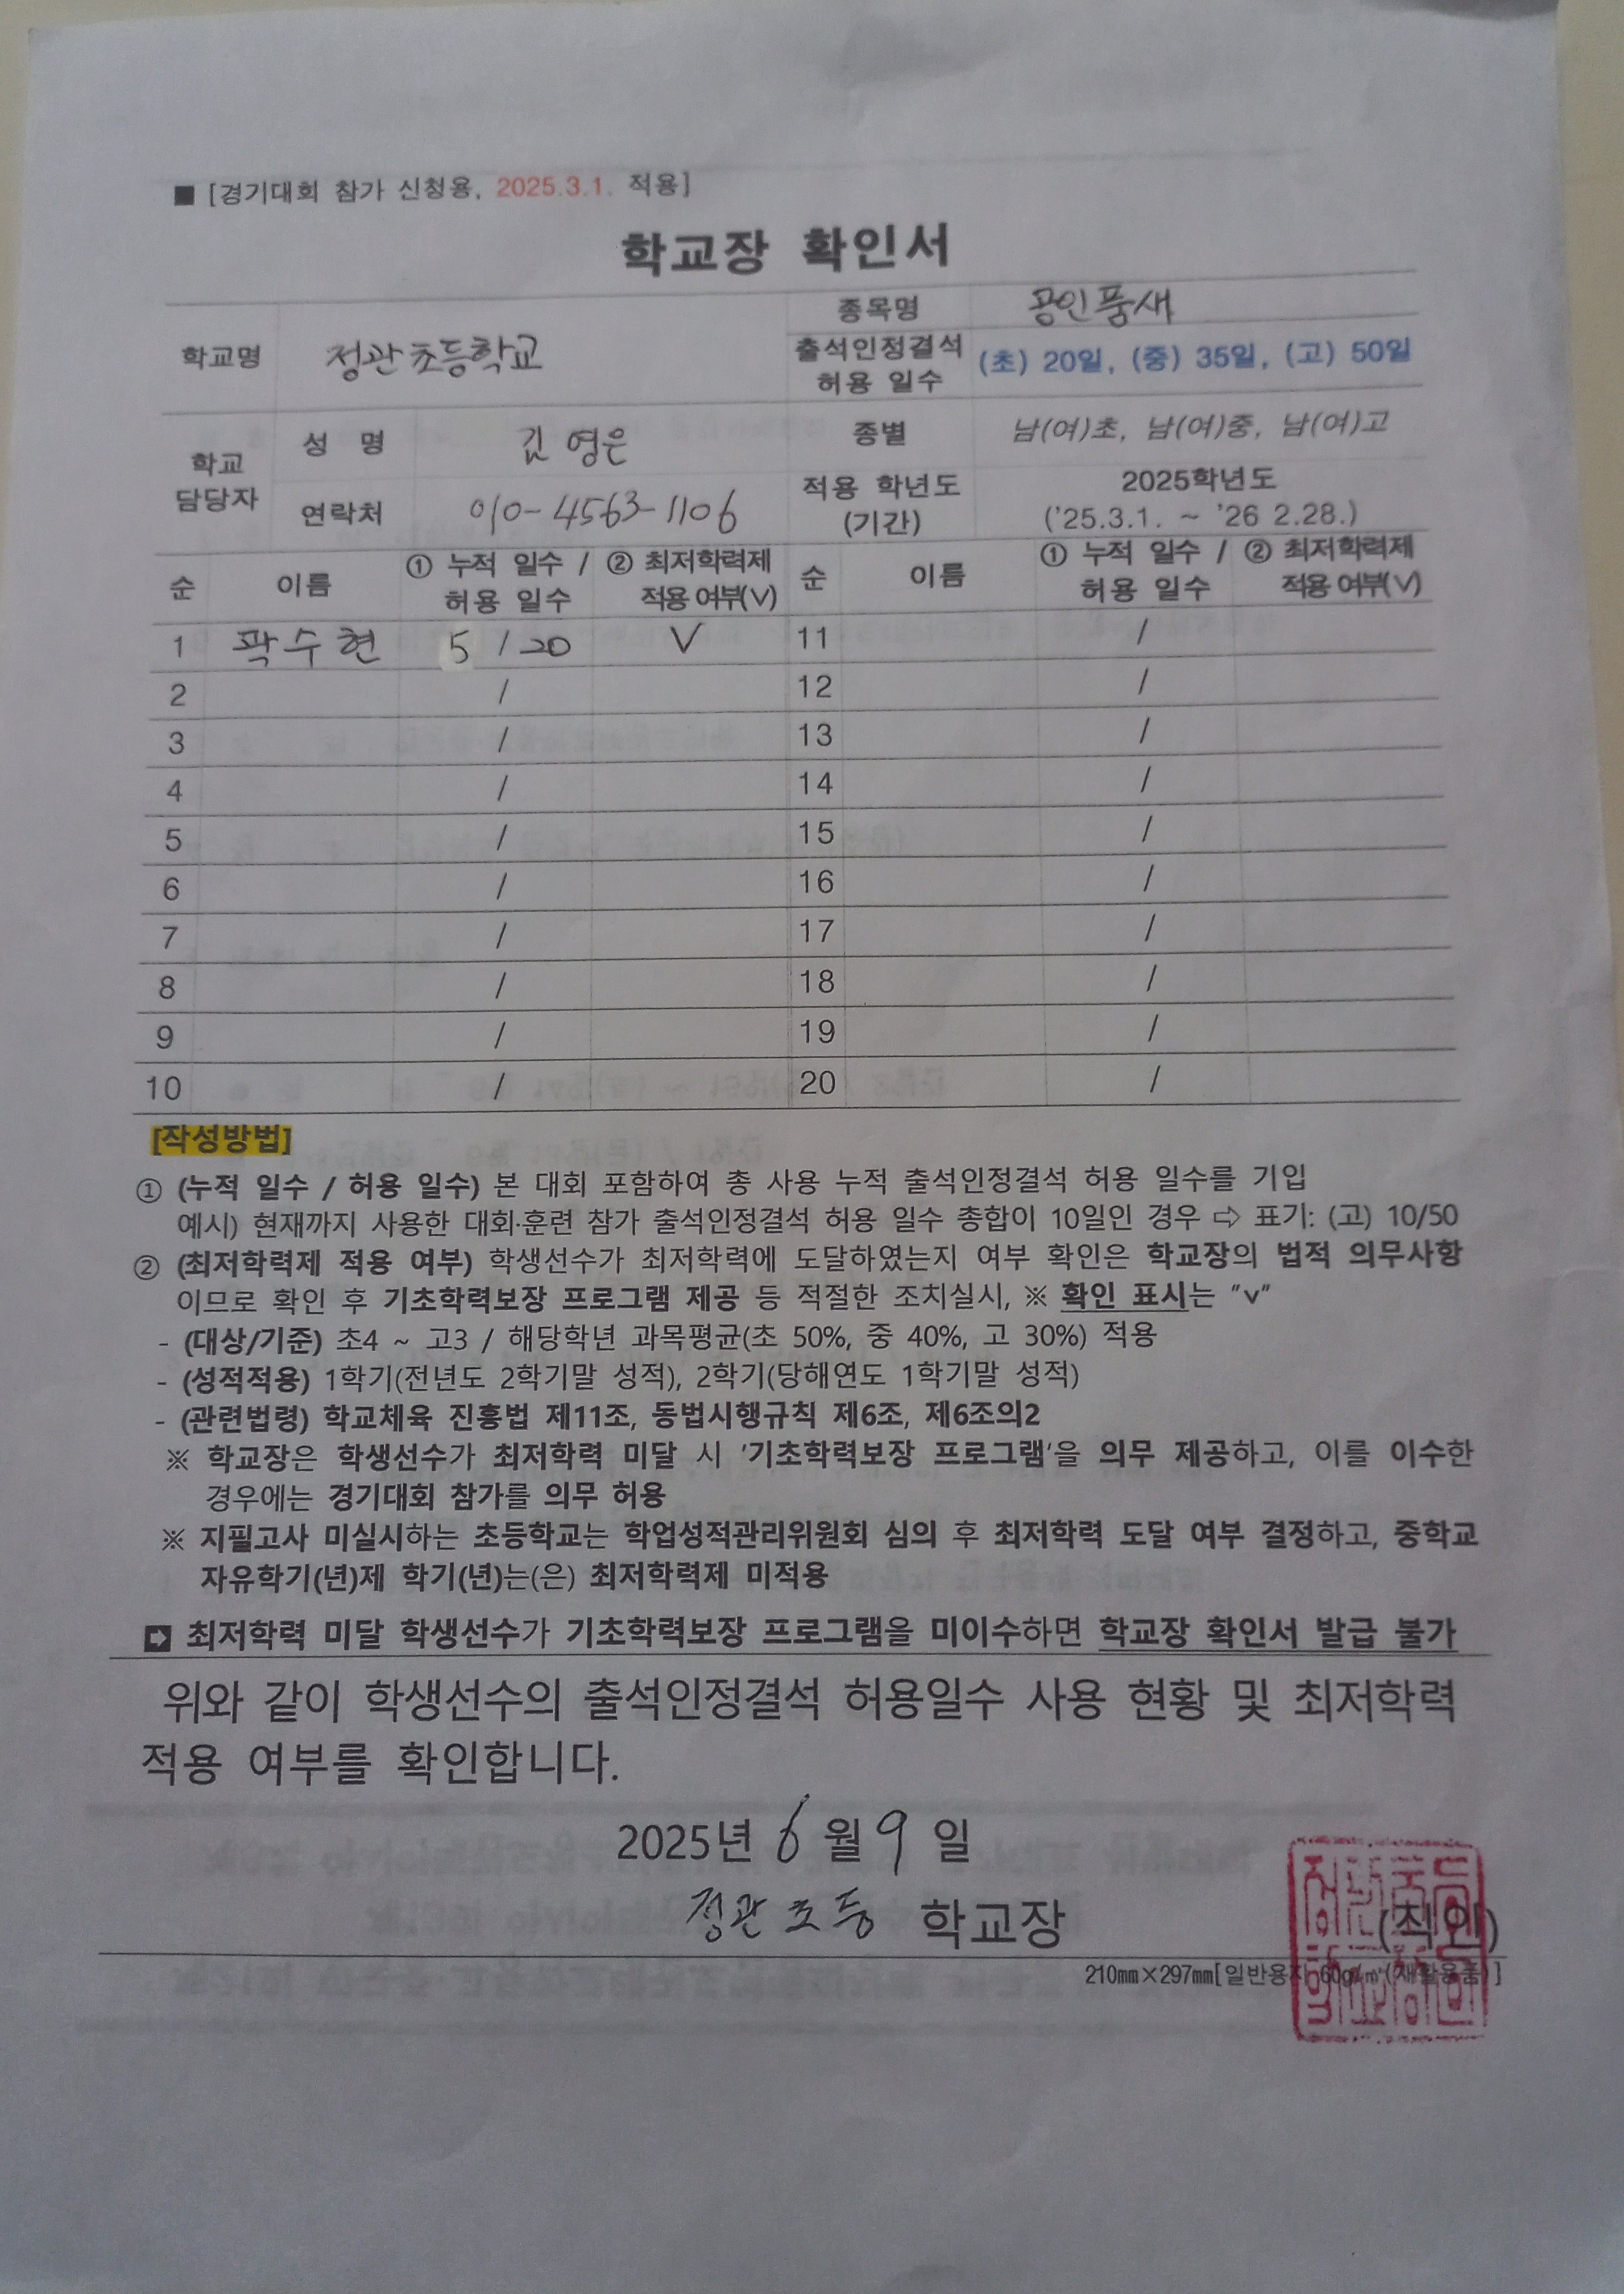 ■ [경기대회 참가 신청용, 2025.3.1. 적용]
학교장 확인서
학교명 정관초등학교 종목명 공인품새
출석인정결석 허용 일수 (초) 20일, (중) 35일, (고) 50일
학교 담당자 성 명 김영은 종별 남(여)초, 남(여)중, 남(여)고
연락처 010-4563-1106 적용 학년도 (기간) 2025학년도
('25.3.1. ~ '26 2.28.)
순 이름 ① 누적 일수 / 허용 일수 ② 최저학력제 적용 여부(V) 순 이름 ① 누적 일수 / 허용 일수 ② 최저학력제 적용 여부(V)
1 곽수현 5 / 20 V 11 /
2 / 12 /
3 / 13 /
4 / 14 /
5 / 15 /
6 / 16 /
7 / 17 /
8 / 18 /
9 / 19 /
10 / 20 /
[작성방법]
① (누적 일수 / 허용 일수) 본 대회 포함하여 총 사용 누적 출석인정결석 허용 일수를 기입
예시) 현재까지 사용한 대회·훈련 참가 출석인정결석 허용 일수 총합이 10일인 경우 ⇨ 표기: (고) 10/50
② (최저학력제 적용 여부) 학생선수가 최저학력에 도달하였는지 여부 확인은 학교장의 법적 의무사항
이므로 확인 후 기초학력보장 프로그램 제공 등 적절한 조치실시, ※ 확인 표시는 "v"
- (대상/기준) 초4 ~ 고3 / 해당학년 과목평균(초 50%, 중 40%, 고 30%) 적용
- (성적적용) 1학기(전년도 2학기말 성적), 2학기(당해연도 1학기말 성적)
- (관련법령) 학교체육 진흥법 제11조, 동법시행규칙 제6조, 제6조의2
※ 학교장은 학생선수가 최저학력 미달 시 '기초학력보장 프로그램'을 의무 제공하고, 이를 이수한
경우에는 경기대회 참가를 의무 허용
※ 지필고사 미실시하는 초등학교는 학업성적관리위원회 심의 후 최저학력 도달 여부 결정하고, 중학교
자유학기(년)제 학기(년)는(은) 최저학력제 미적용
➡ 최저학력 미달 학생선수가 기초학력보장 프로그램을 미이수하면 학교장 확인서 발급 불가
위와 같이 학생선수의 출석인정결석 허용일수 사용 현황 및 최저학력
적용 여부를 확인합니다.
2025년 6월 9일
정관초등 학교장 (직인)
210㎜×297㎜[일반용지 60g/㎡(재활용품)]